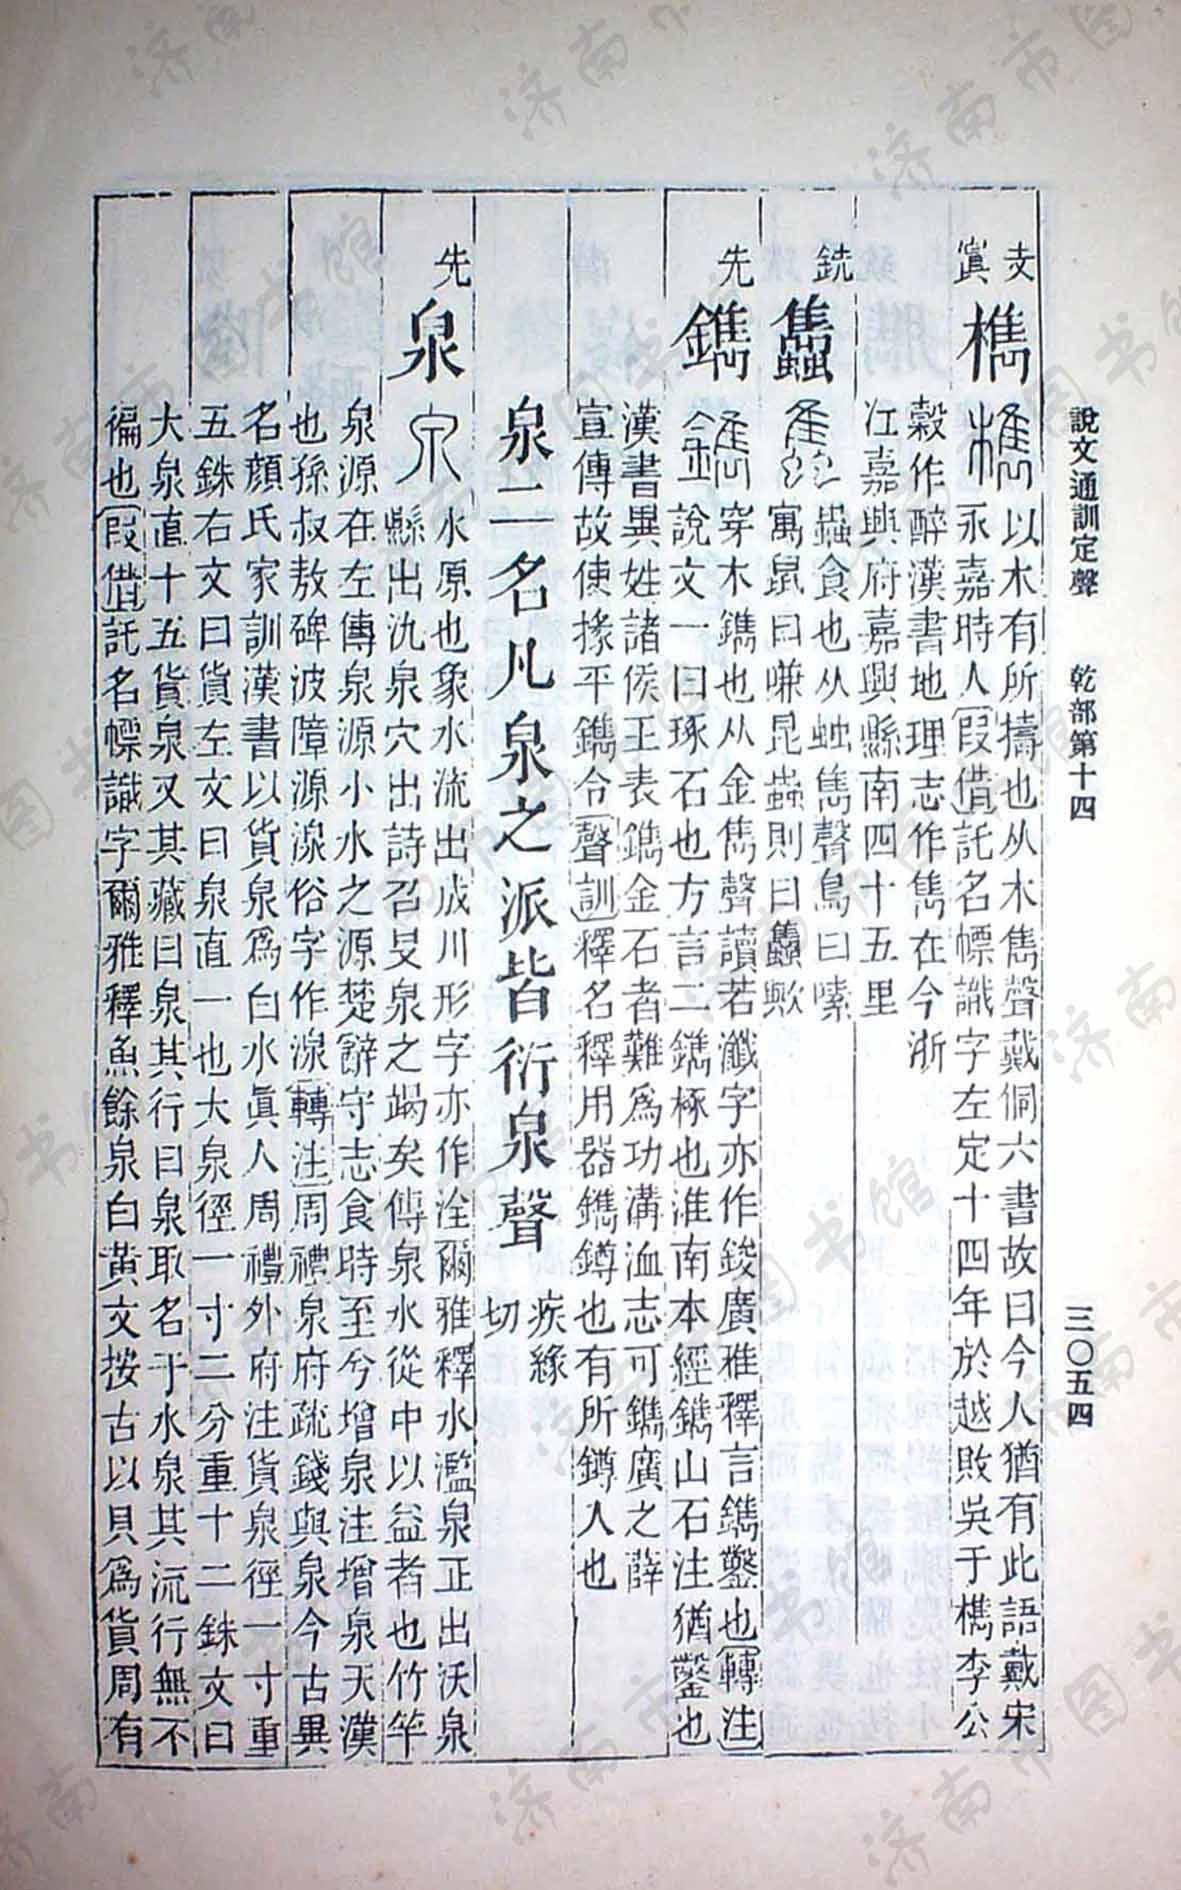 說文通訓定聲　乾部第十四　三〇五四
支
寘
檇
以木有所擣也从木雋聲戴侗六書故曰今人猶有此語戴宋
永嘉時人叚借託名幖識字左定十四年於越敗吳于檇李公
穀作醉漢書地理志作雋在今浙
江嘉興府嘉興縣南四十五里
銑
蠫食也从䖵雋聲鳥曰嗉
寓鼠曰嗛昆蟲則曰歟
先
鐫
穿木鐫也从金雋聲讀若瀸字亦作鋑廣雅釋言鐫鑿也轉注
說文一曰琢石也方言二鐫㧻也淮南本經鐫山石注猶鑿也
漢書異姓諸侯王表鐫金石者難爲功溝洫志可鐫廣之薛
宣傳故使掾平鐫令聲訓釋名釋用器鐫鐏也有所鐏入也
泉二名凡泉之派皆衍泉聲
疾緣
切
先
泉
水原也象水流出成川形字亦作洤爾雅釋水濫泉正出沃泉
縣出氿泉穴出詩召旻泉之竭矣傳泉水從中以益者也竹竿
泉源在左傳泉源小水之源楚辭守志食時至兮增泉注增泉天漢
也孫叔敖碑波障源湶俗字作湶轉注周禮泉府疏錢與泉今古異
名顏氏家訓漢書以貨泉爲白水眞人周禮外府注貨泉徑一寸重
五銖右文曰貨左文曰泉直一也大泉徑一寸二分重十二銖文曰
大泉直十五貨泉又其藏曰泉其行曰泉取名于水泉其流行無不
徧也叚借託名幖識字爾雅釋魚餘泉白黃文按古以貝爲貨周有
济南市图书馆